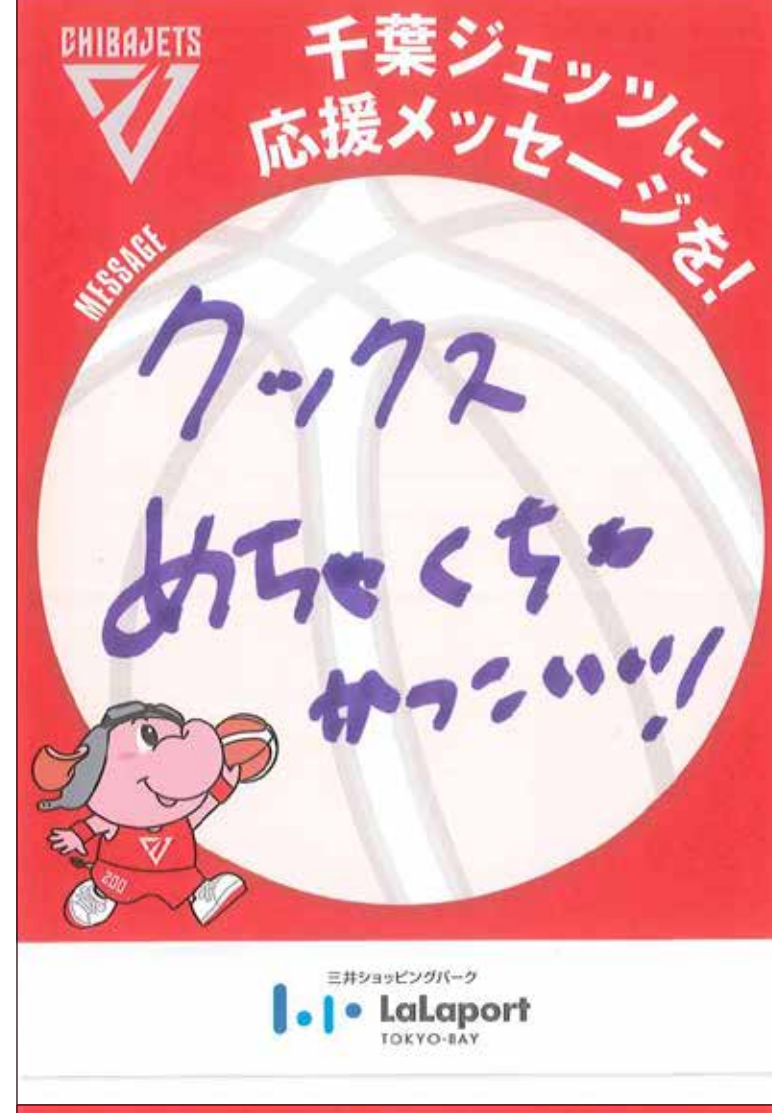 CHIBAJETS
千葉ジェッツに
応援メッセージを!
MESSAGE
クックス
めちゃくちゃ
かっこいい!
200
三井ショッピングパーク
LaLaport
TOKYO-BAY